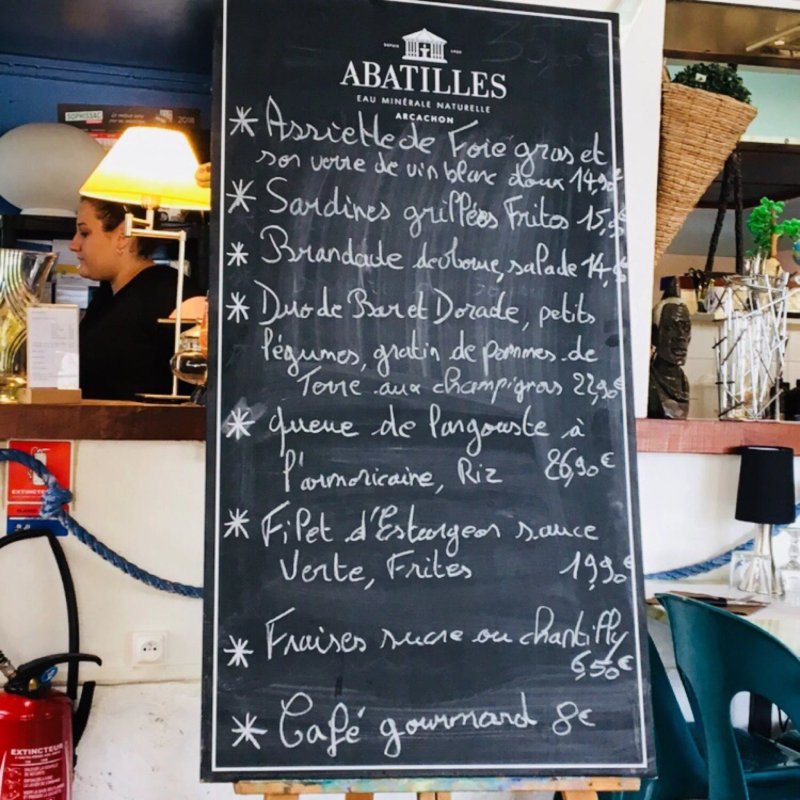 DEPUIS 1925
ABATILLES
EAU MINÉRALE NATURELLE
ARCACHON
* Assiette de Foie gras et
son verre de vin blanc doux 14,90€
* Sardines grillées Frites 15,9€
* Brandade salade 14,9€
* Duo de Bar et Dorade, petits
légumes, gratin de pommes de
Terre aux champignons 22,90€
* queue de langouste à
l'armoricaine, Riz 26,90€
* Filet d'Esturgeon sauce
Verte, Frites 19,90€
* Fraises sucre ou chantilly
6,50€
* Café gourmand 8€
SOPHISSAC
2018
EXTINCTEUR
EXTINCTEUR